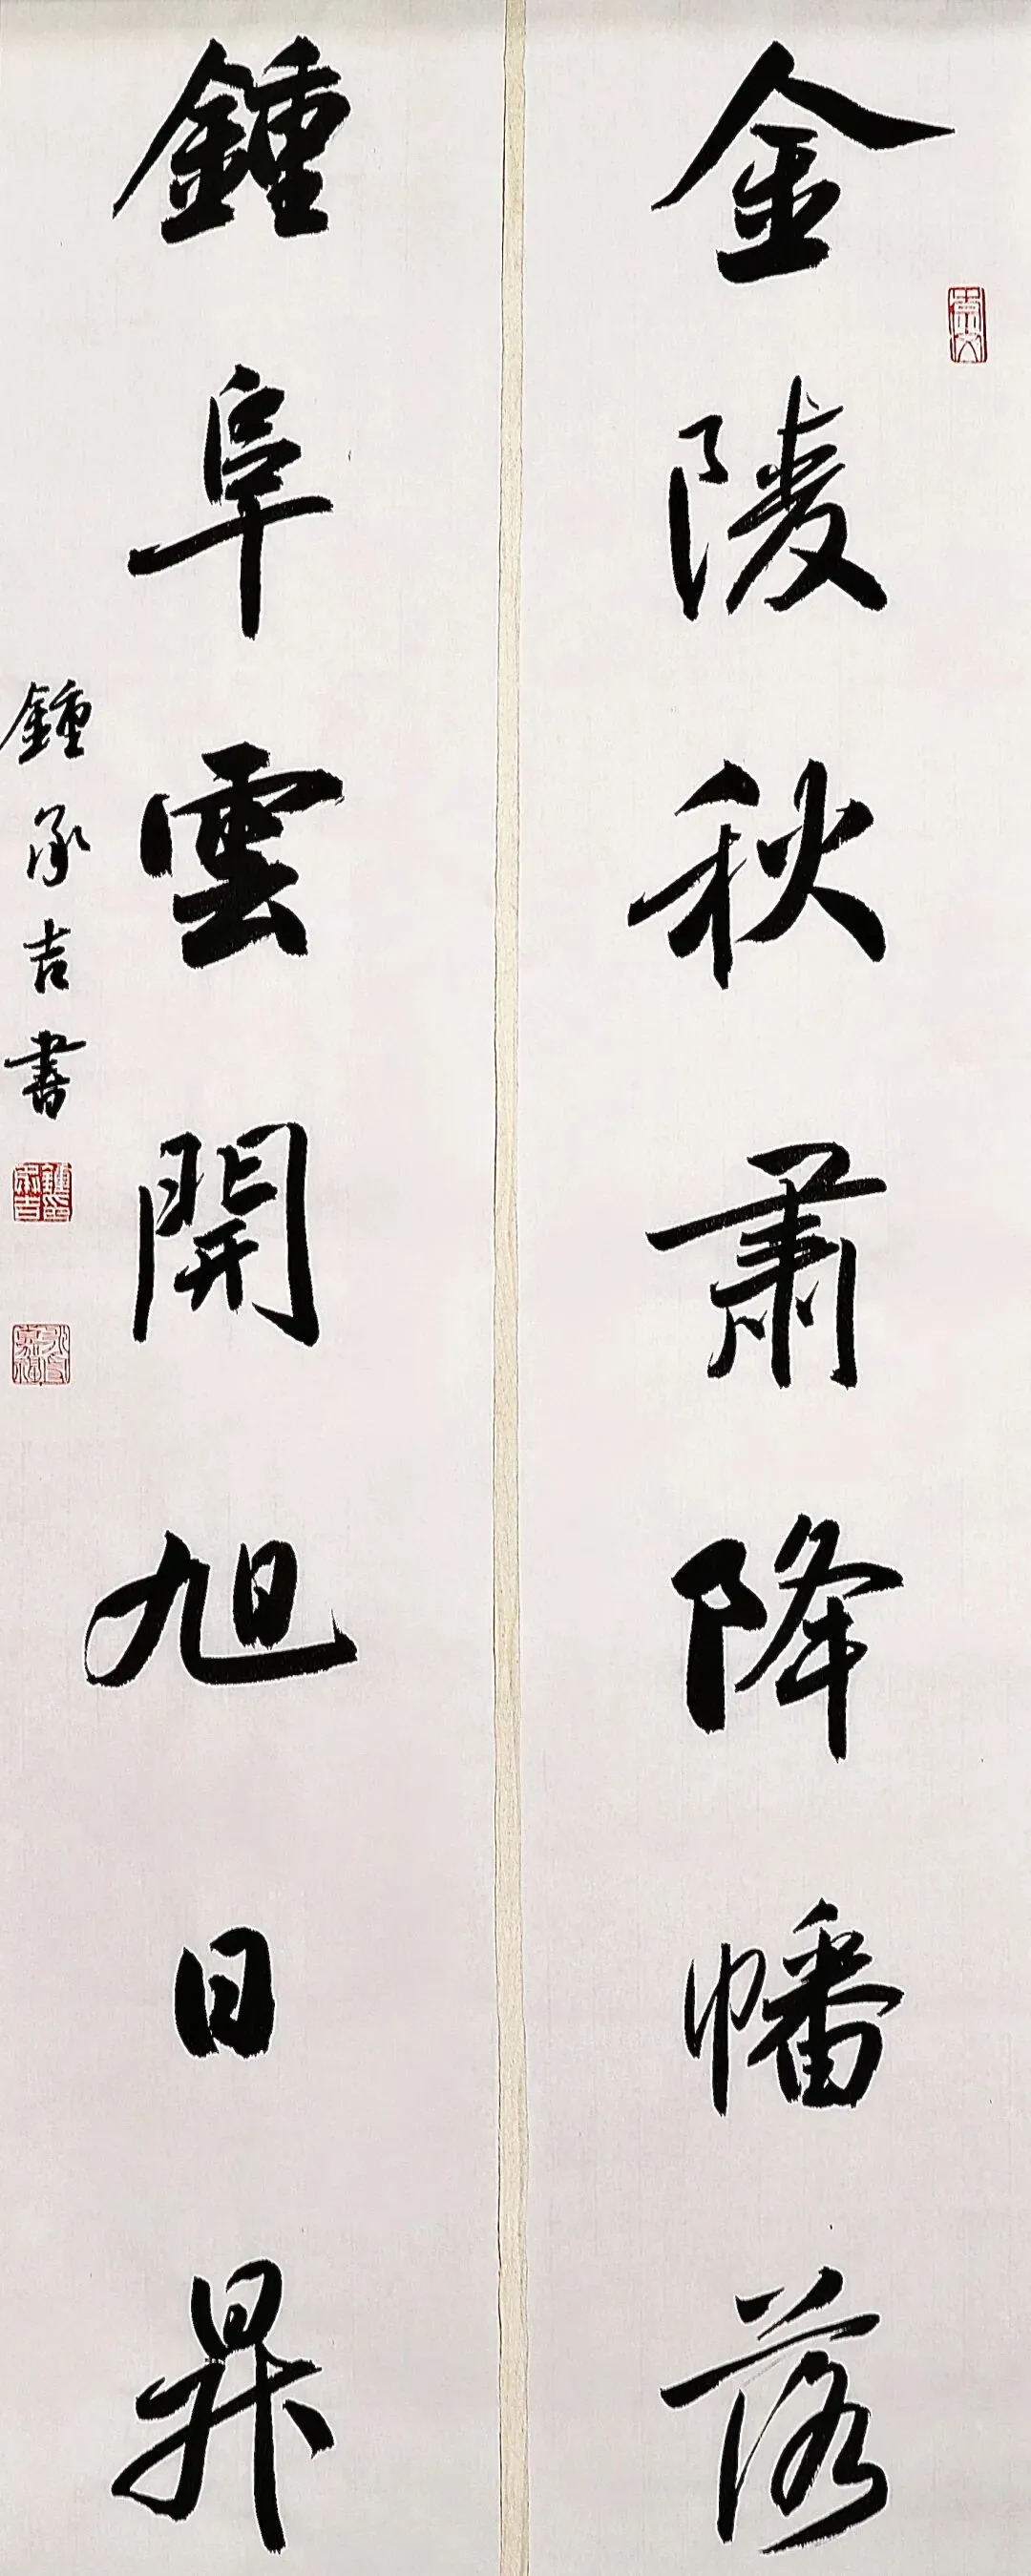 金陵秋肅降幡落
鍾阜雲開旭日昇
鍾承吉書